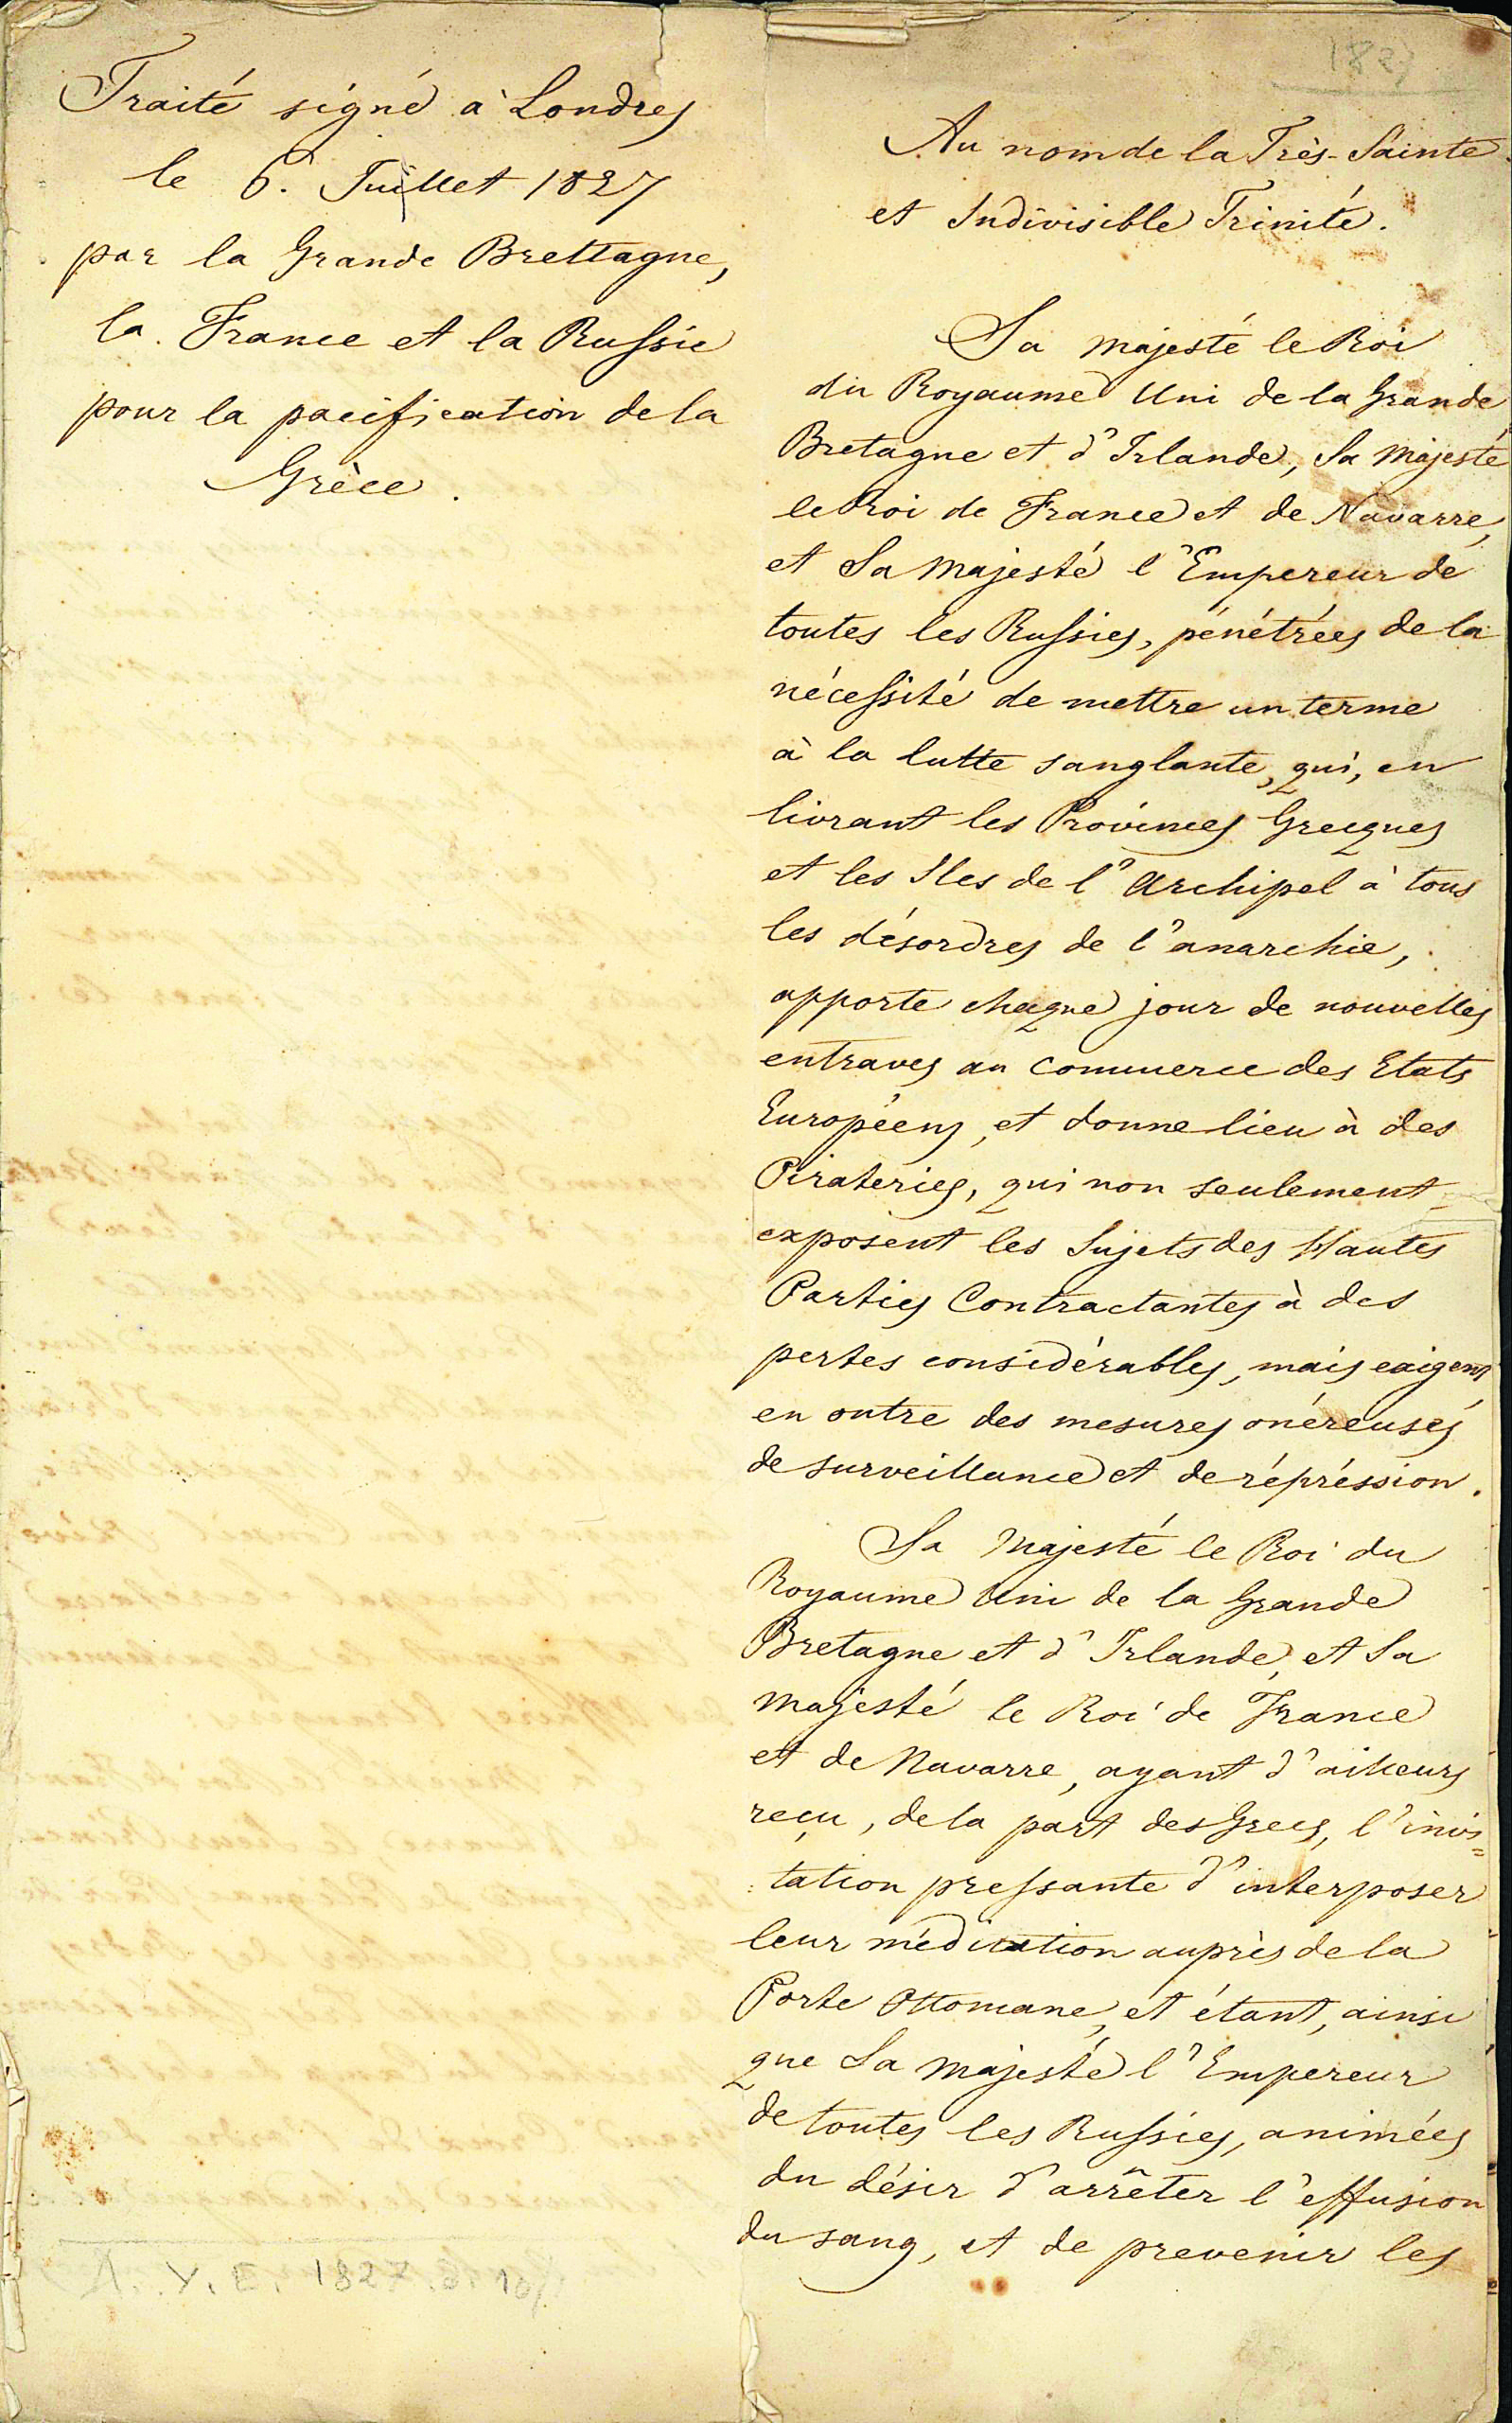 Traité signé à Londres
le 6. Juillet 1827
par la Grande Brettagne,
la France et la Russie
pour la pacification de la
Grèce.
1827
Au nom de la Très-Sainte
et Indivisible Trinité.
Sa Majesté le Roi
du Royaume Uni de la Grande
Bretagne et d'Irlande, Sa Majesté
le Roi de France et de Navarre,
et Sa Majesté l'Empereur de
toutes les Russies, pénétrées de la
nécessité de mettre un terme
à la lutte sanglante, qui, en
livrant les Provinces Grecques
et les Iles de l'Archipel à tous
les désordres de l'anarchie,
apporte chaque jour de nouvelles
entraves au commerce des Etats
Européens, et donne lieu à des
Pirateries, qui non seulement
exposent les Sujets des Hautes
Parties Contractantes à des
pertes considérables, mais exigent
en outre des mesures onéreuses
de surveillance et de répréssion.
Sa Majesté le Roi du
Royaume Uni de la Grande
Bretagne et d'Irlande, et Sa
Majesté le Roi de France
et de Navarre, ayant d'ailleurs
reçu, de la part des Grecs, l'invi=
tation pressante d'interposer
leur médiation auprès de la
Porte Ottomane, et étant, ainsi
que Sa Majesté l'Empereur
de toutes les Russies, animées
du désir d'arrêter l'effusion
du sang, et de prevenir les
Α.Υ.Ε. 1827